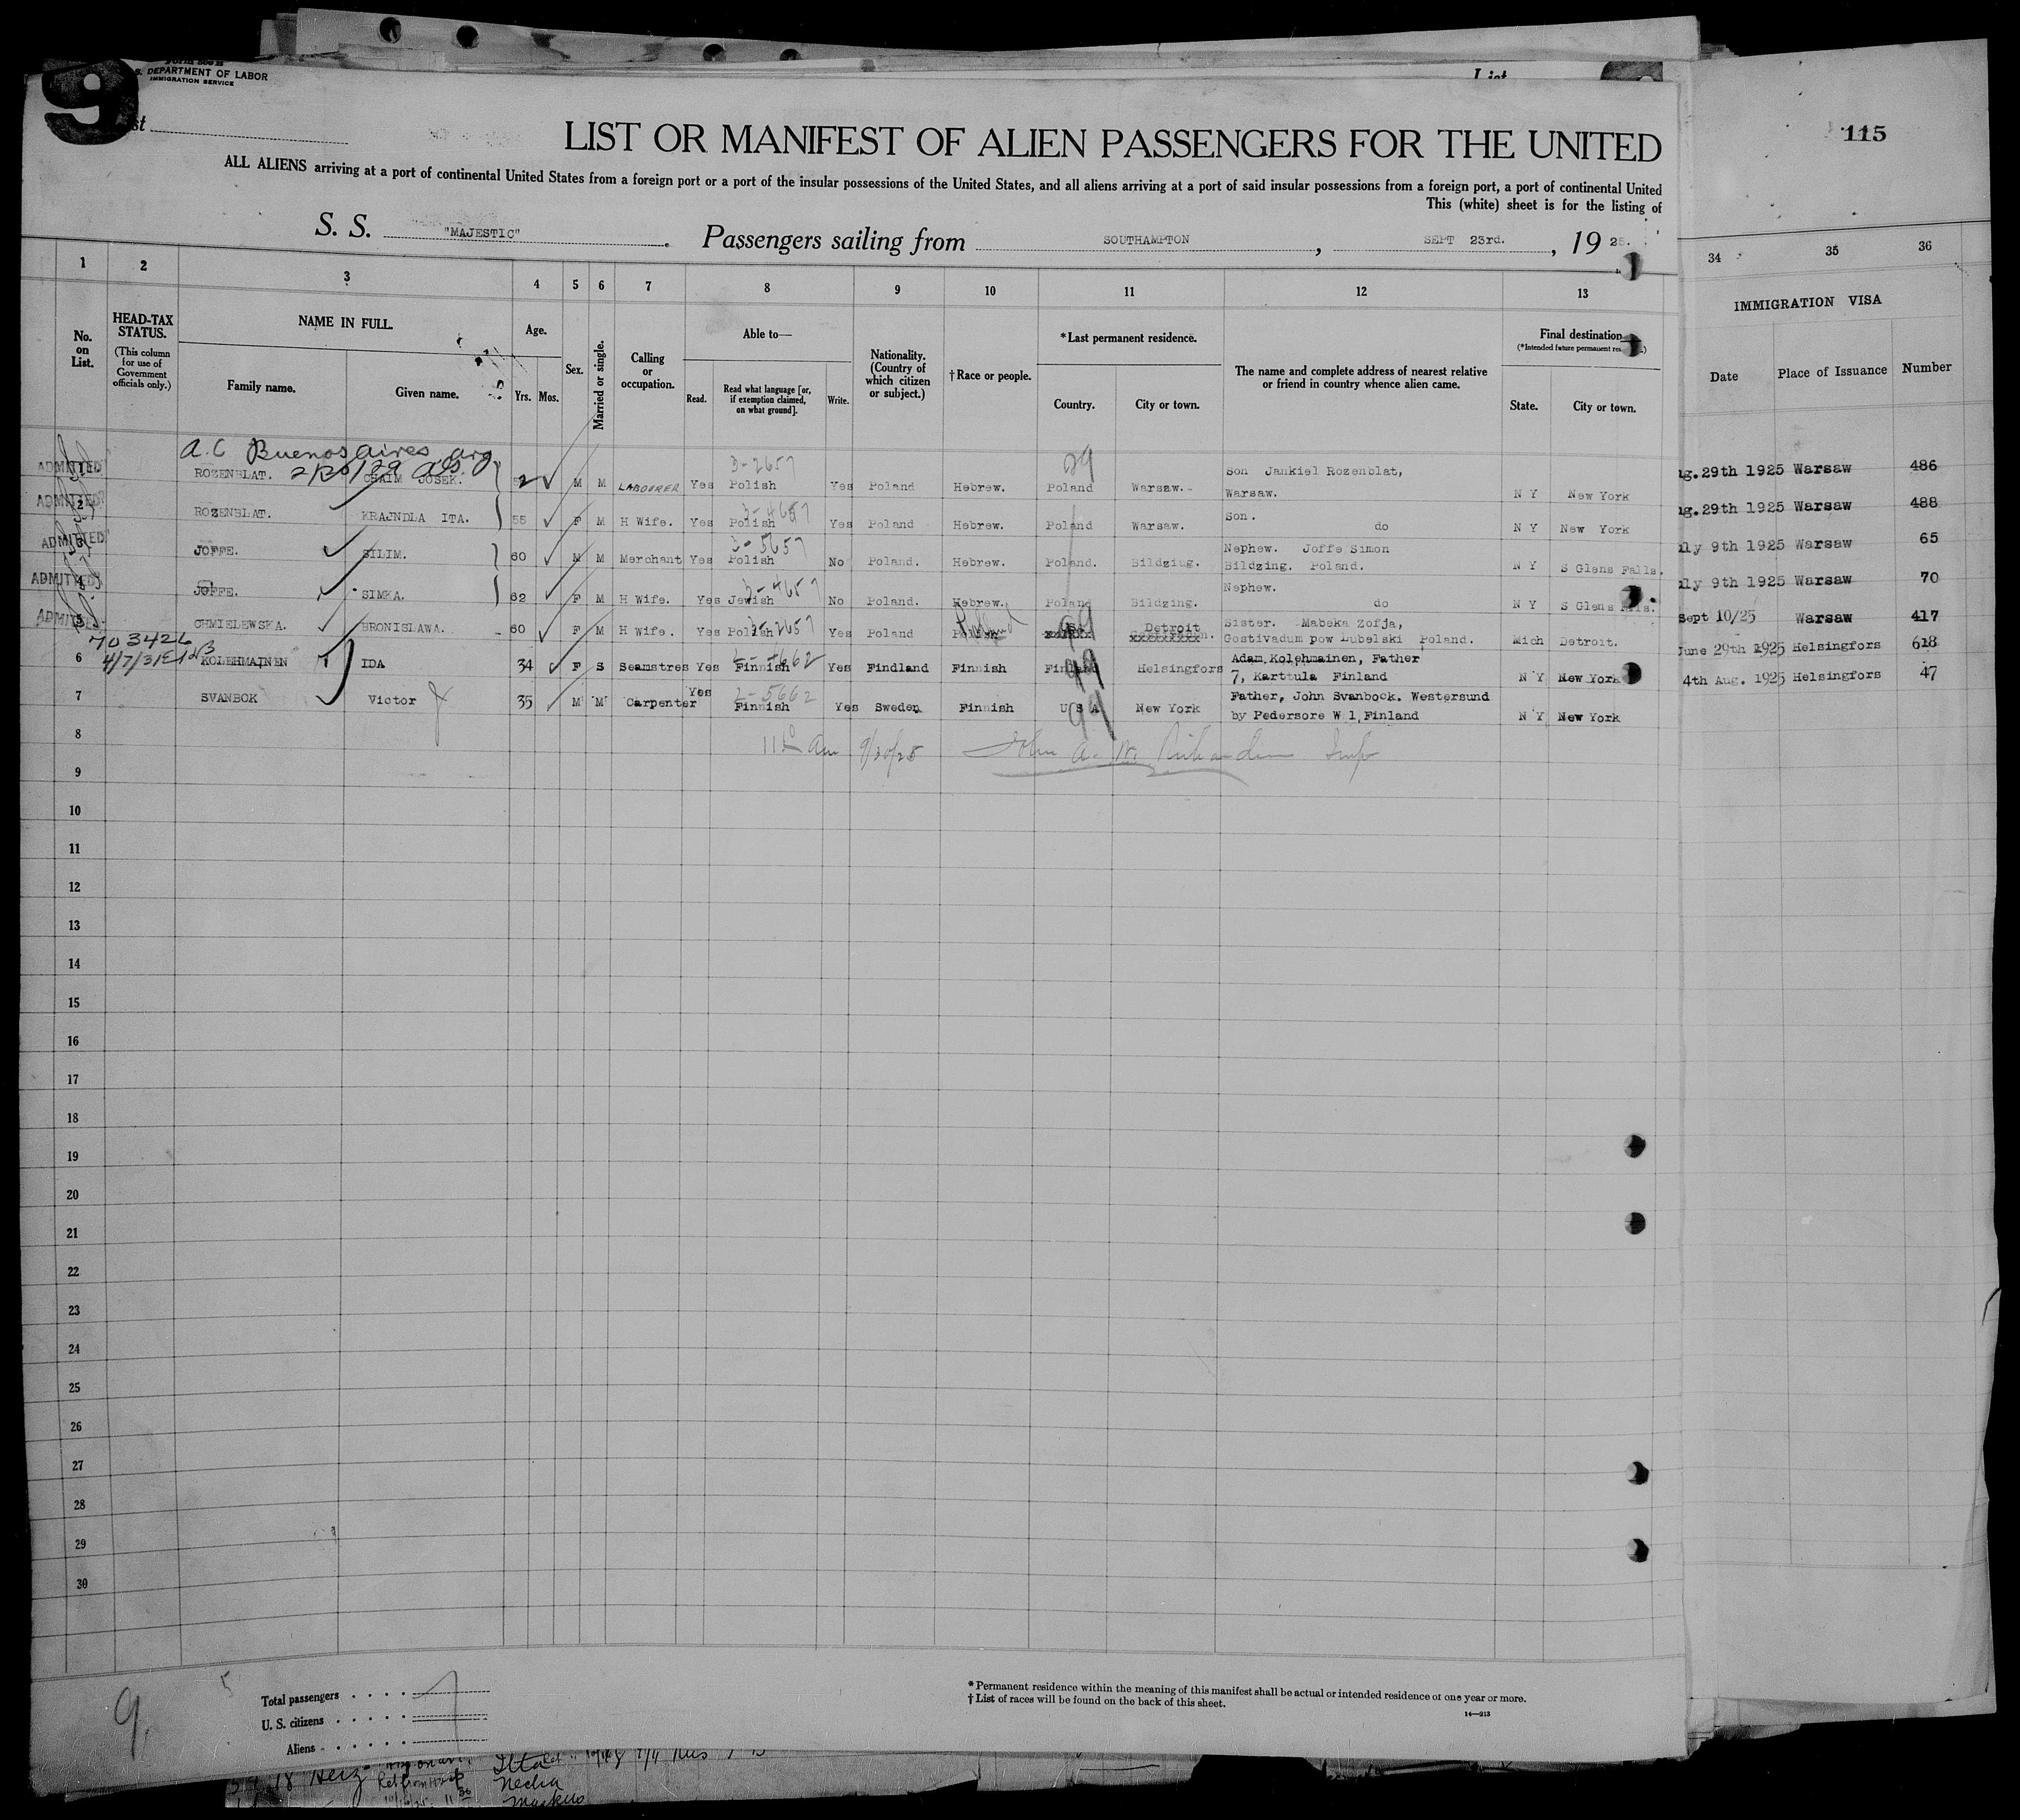 9
DEPARTMENT OF LABOR
IMMIGRATION SERVICE
List
115
LIST OR MANIFEST OF ALIEN PASSENGERS FOR THE UNITED
ALL ALIENS arriving at a port of continental United States from a foreign port or a port of the insular possessions of the United States, and all aliens arriving at a port of said insular possessions from a foreign port, a port of continental United
This (white) sheet is for the listing of
S. S. "MAJESTIC". Passengers sailing from SOUTHAMPTON, SEPT 23rd., 1925.
1 2 3 4 5 6 7 8 9 10 11 12 13 34 35 36
No. on List.
HEAD-TAX STATUS.
(This column for use of Government officials only.)
NAME IN FULL.
Family name. Given name.
Age.
Yrs. Mos.
Sex.
Married or single.
Calling or occupation.
Able to—
Read. Read what language [or, if exemption claimed, on what ground]. Write.
Nationality. (Country of which citizen or subject.)
†Race or people.
*Last permanent residence.
Country. City or town.
The name and complete address of nearest relative or friend in country whence alien came.
Final destination
State. City or town.
IMMIGRATION VISA
Date Place of Issuance Number
A.C Buenos Aires arg
ADMITTED 1 ROZENBLAT. CHAIM JOSEK. M M LABOURER Yes Polish Yes Poland Hebrew. Poland Warsaw. Son Jankiel Rozenblat, Warsaw. N Y New York 29th 1925 Warsaw 486
3-2657
ADMITTED 2 ROZENBLAT. KRAJNDLA ITA. 55 F M H Wife. Yes Polish Yes Poland Hebrew. Poland Warsaw. Son. do N Y New York 29th 1925 Warsaw 488
3-4657
ADMITTED 3 JOFFE. SILIM. 60 M M Merchant Yes Polish No Poland. Hebrew. Poland. Bildzing. Nephew. Joffe Simon Bildzing. Poland. N Y S Glens Falls. 9th 1925 Warsaw 65
3-5657
ADMITTED 4 JOFFE. SIMKA. 62 F M H Wife. Yes Jewish No Poland. Hebrew. Poland Bildzing. Nephew. do N Y S Glens Falls. 9th 1925 Warsaw 70
3-4657
ADMITTED 5 CHMIELEWSKA. BRONISLAWA. 60 F M H Wife. Yes Polish Yes Poland Polish Detroit Sister. Mabeka Zofja, Gostivadum pow Lubelski Poland. Mich Detroit. Sept 10/25 Warsaw 417
703426
6 KOLEHMAINEN IDA 34 F S Seamstres Yes Finnish Yes Findland Finnish Finland Helsingfors Adam Kolehmainen, Father 7, Karttula Finland N Y New York June 29th 1925 Helsingfors 618
7 SVANBOK Victor 35 M M Carpenter Yes Finnish Yes Sweden Finnish U S A New York Father, John Svanbook. Westersund by Pedersore W l, Finland N Y New York 4th Aug. 1925 Helsingfors 47
2-5662
8
am 9/30/25 John A. Insp
9
10
11
12
13
14
15
16
17
18
19
20
21
22
23
24
25
26
27
28
29
30
9.
5
Total passengers 7
U. S. citizens
Aliens
*Permanent residence within the meaning of this manifest shall be actual or intended residence of one year or more.
†List of races will be found on the back of this sheet.
14—213
Necha